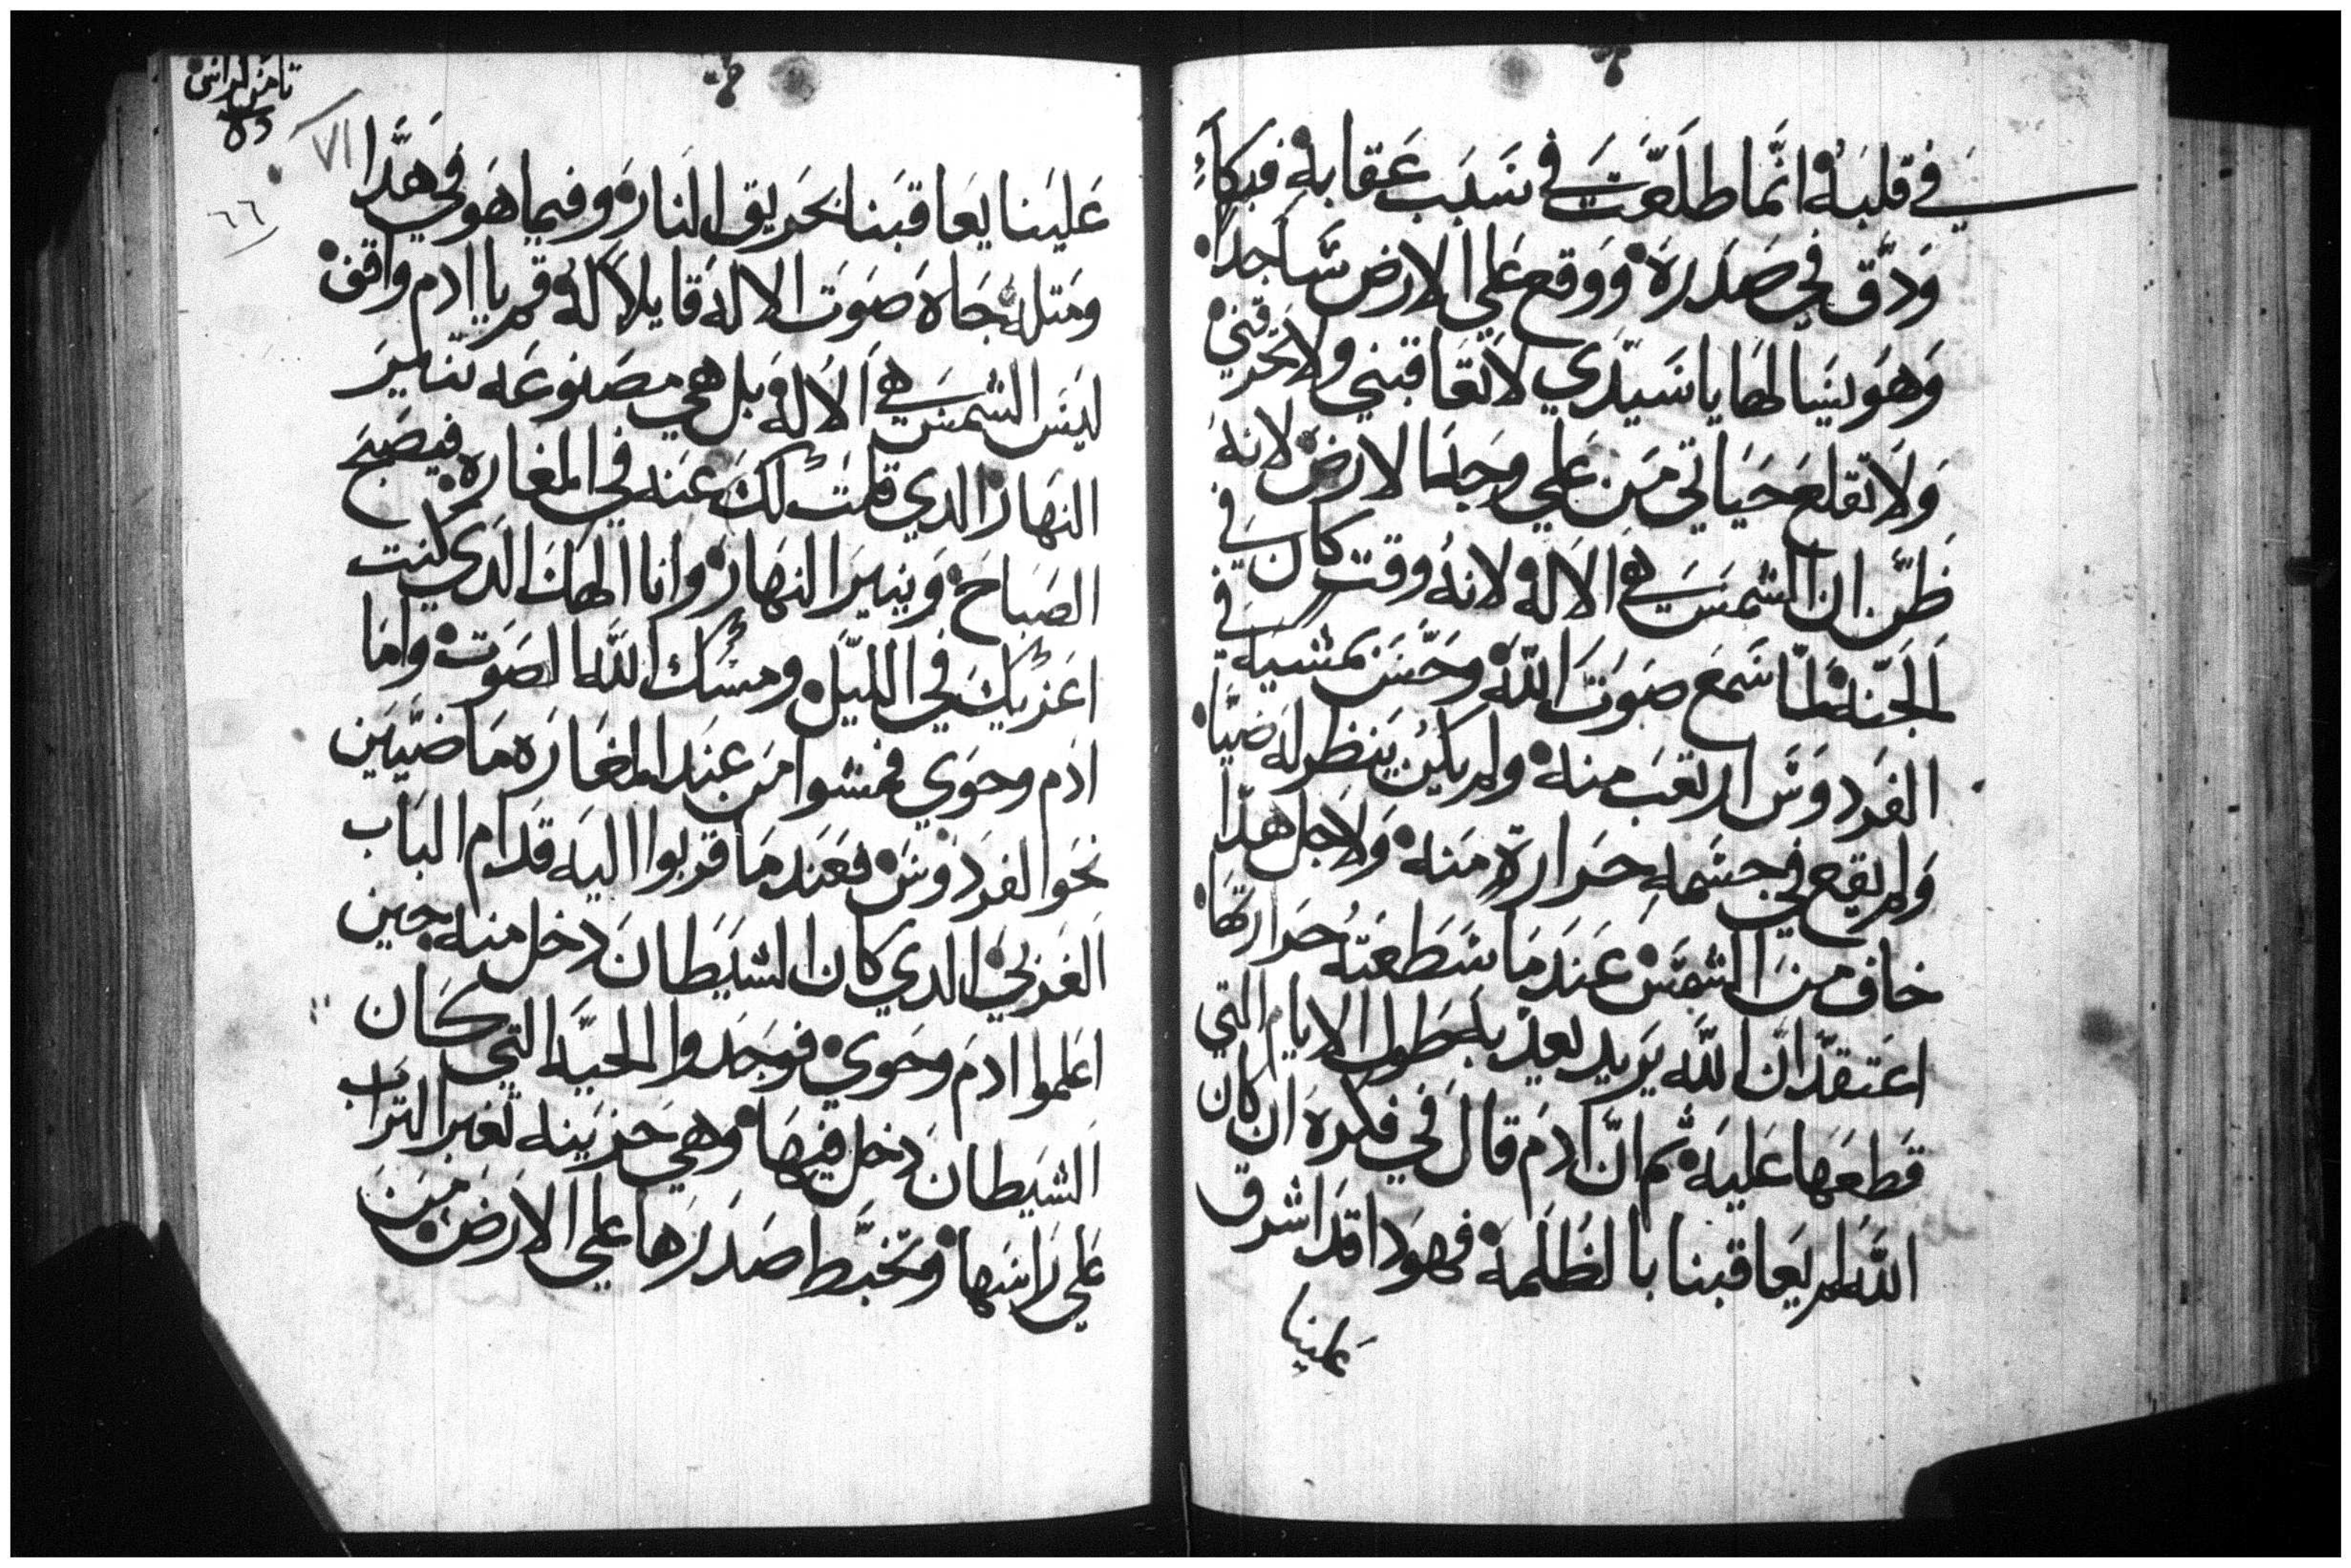 في قلبه انما طلعت في سبب عقابه فبكاء
ودق في صدره ووقع علي الارض ساجدا
وهو يسال الها يا سيدي لا تعاقبني ولا تحرقني
ولا تقلع حياتي من علي وجه الارض لانه
ظن ان الشمس هي الاله لانه وقت كان في
الجنه لما سمع صوت الله وحس بمشيه في
الفردوس ارتعب منه ولم يكن ينظر له ضيا
ولم يقع في جسمه حرارة منه ولاجل هدا
خاف من الشمس عندما سطعته حرارتها
اعتقد ان الله يريد يعذبه بطول الايام التي
قطعها عليه ثم ان ادم قال في فكره ان كان
الله لم يعاقبنا بالظلمه فهودا قد اشرق
علينا
ثامن كراس
٦٦
٧١
علينا يعاقبنا بحريق النار وفيما هو في هدا
ومتله جاه صوت الاله قايلا له قم يا ادم واقف
ليس الشمس هي الاله بل هي مصنوعه تنير
النهار الدي قلت لك عنه في المغاره فيصبح
الصباح وينير النهار وانا الهك الدي كنت
اعزيك في الليل ومسك الله الصوت واما
ادم وحوي فمشوا من عند المغاره ماضيين
نحو الفردوس فعندما قربوا اليه قدام الباب
الغربي الدي كان الشيطان دخل منه حين
اعلموا ادم وحوي فوجدوا الحيه التي كان
الشيطان دخل فيها وهي حزينه تغبر التراب
علي راسها وتخبط صدرها علي الارض من